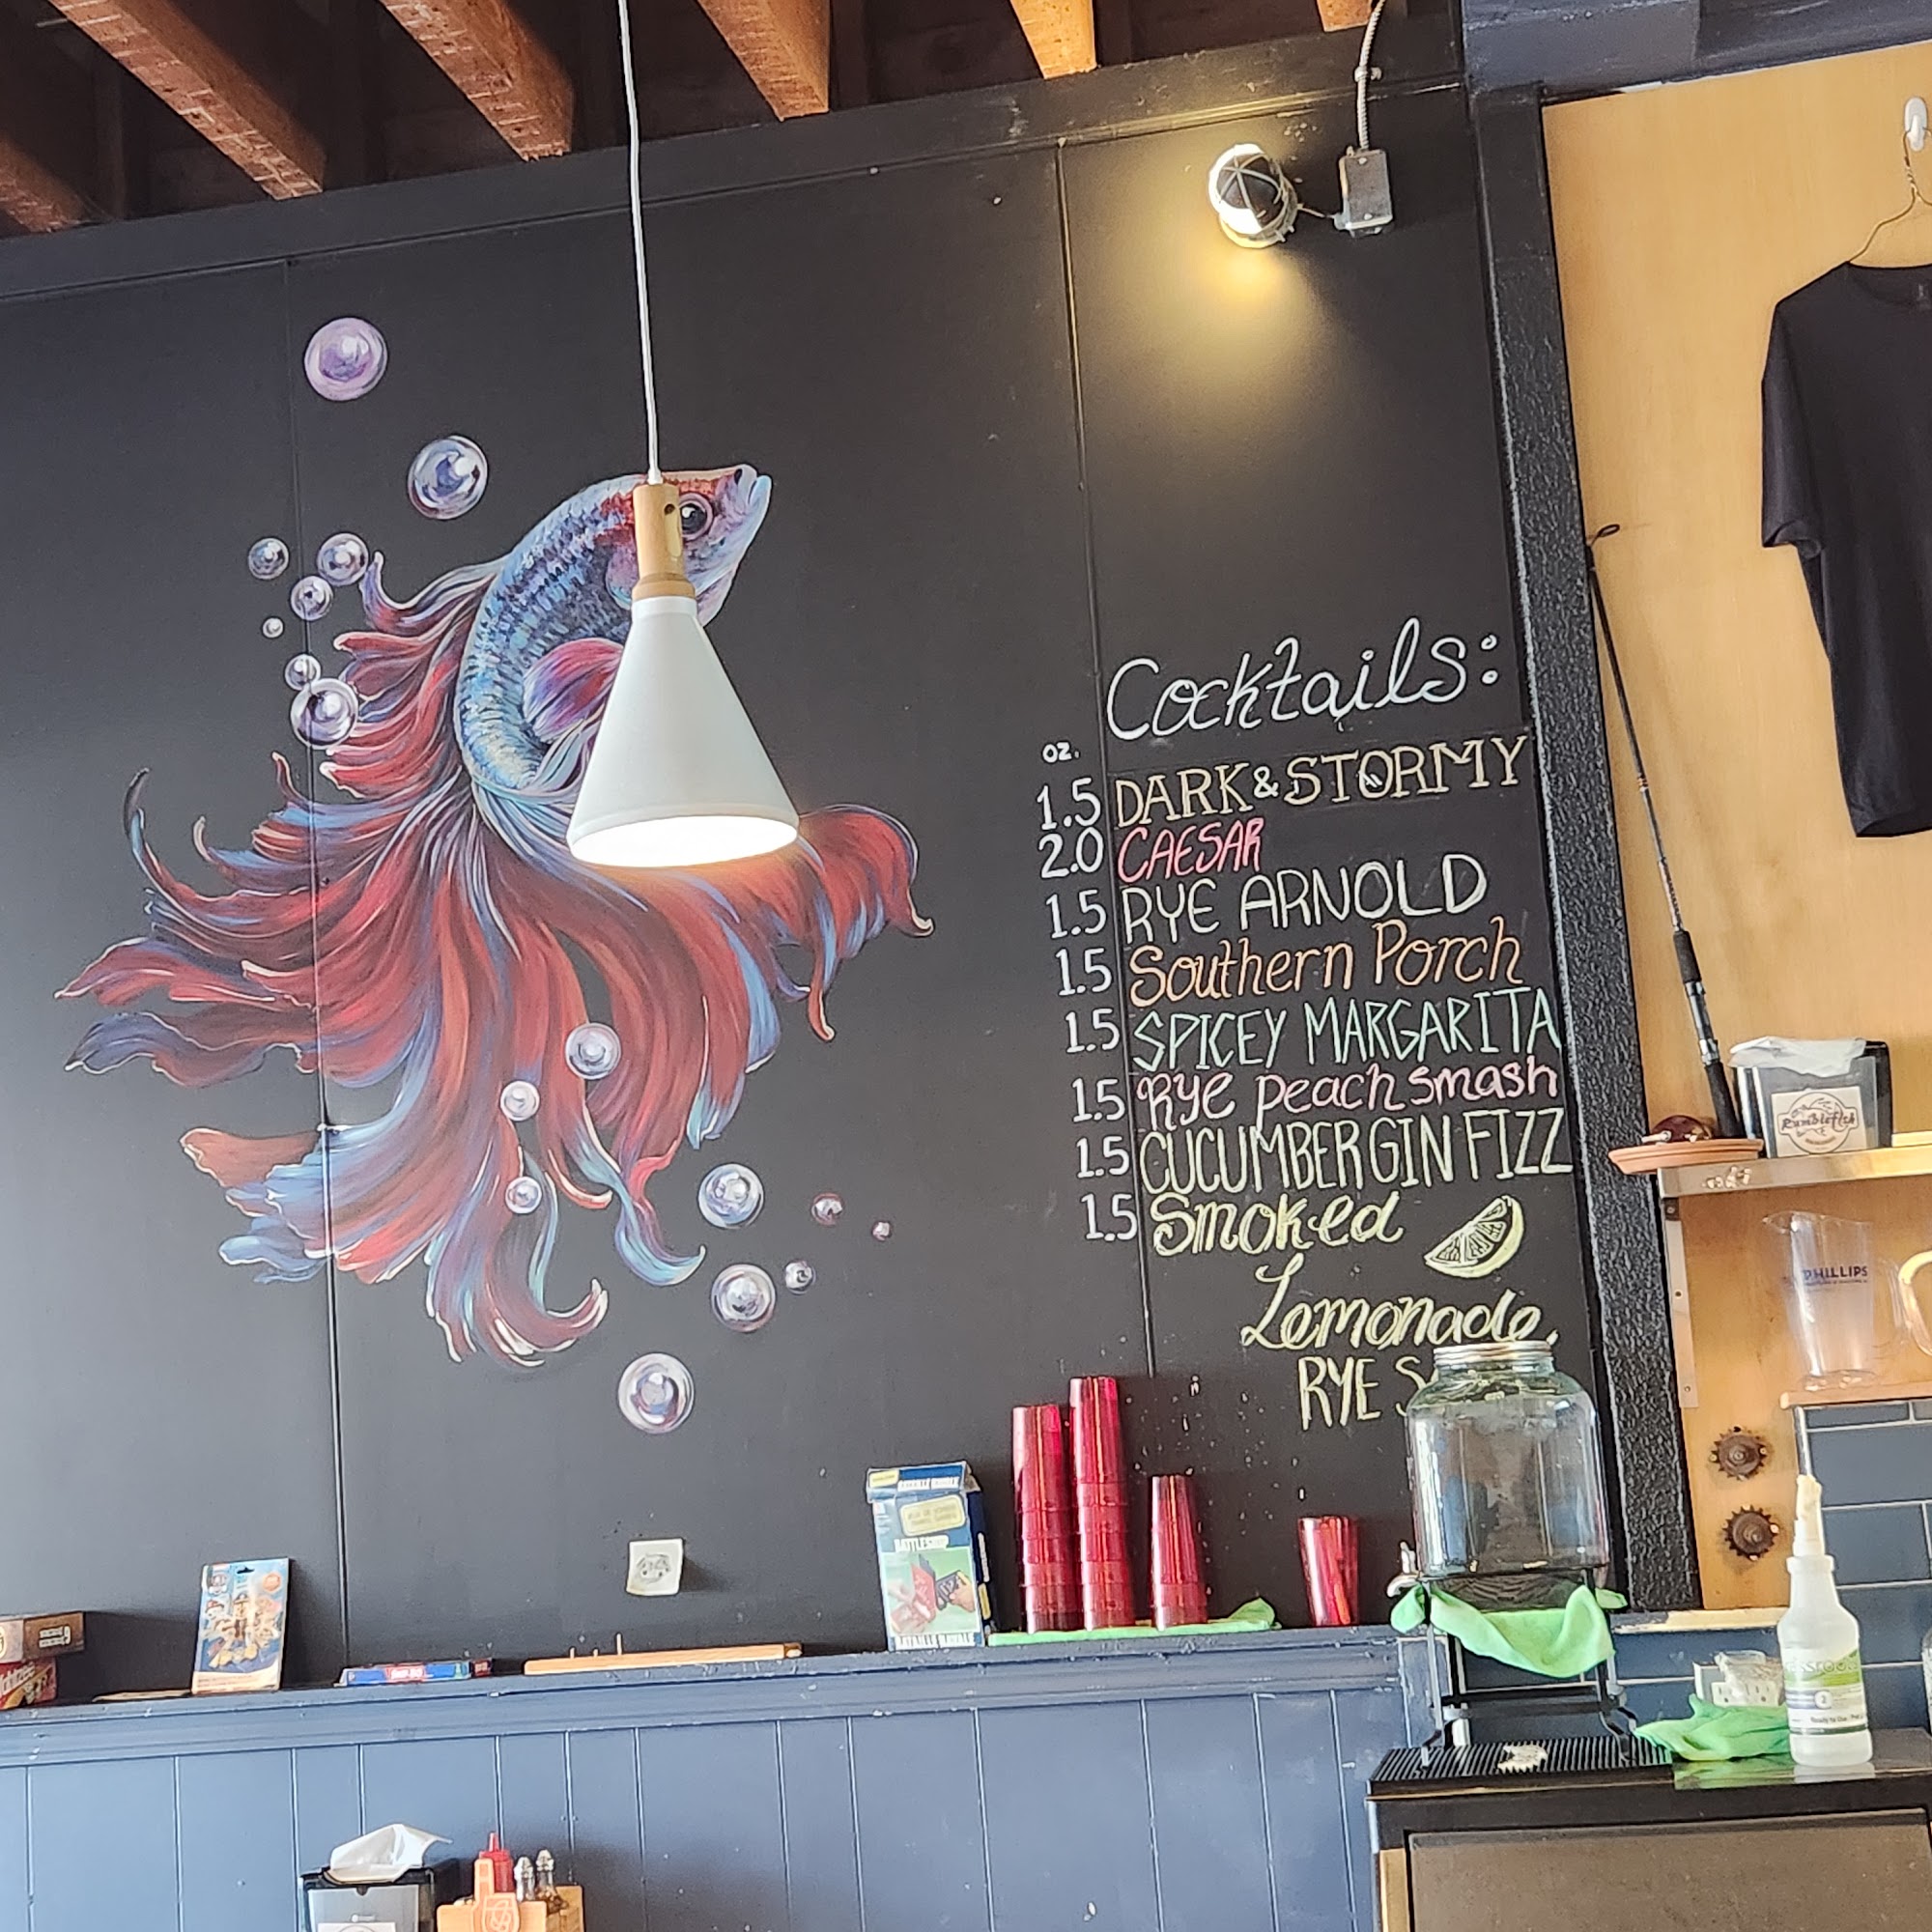 Cocktails:
oz.
1.5 DARK & STORMY
2.0 CAESAR
1.5 RYE ARNOLD
1.5 Southern Porch
1.5 SPICEY MARGARITA
1.5 Rye peach smash
1.5 CUCUMBER GIN FIZZ
1.5 Smoked
Lemonade.
RYE
Rumblefish
PHILLIPS
BATTLESHIP
BATAILLE NAVALE